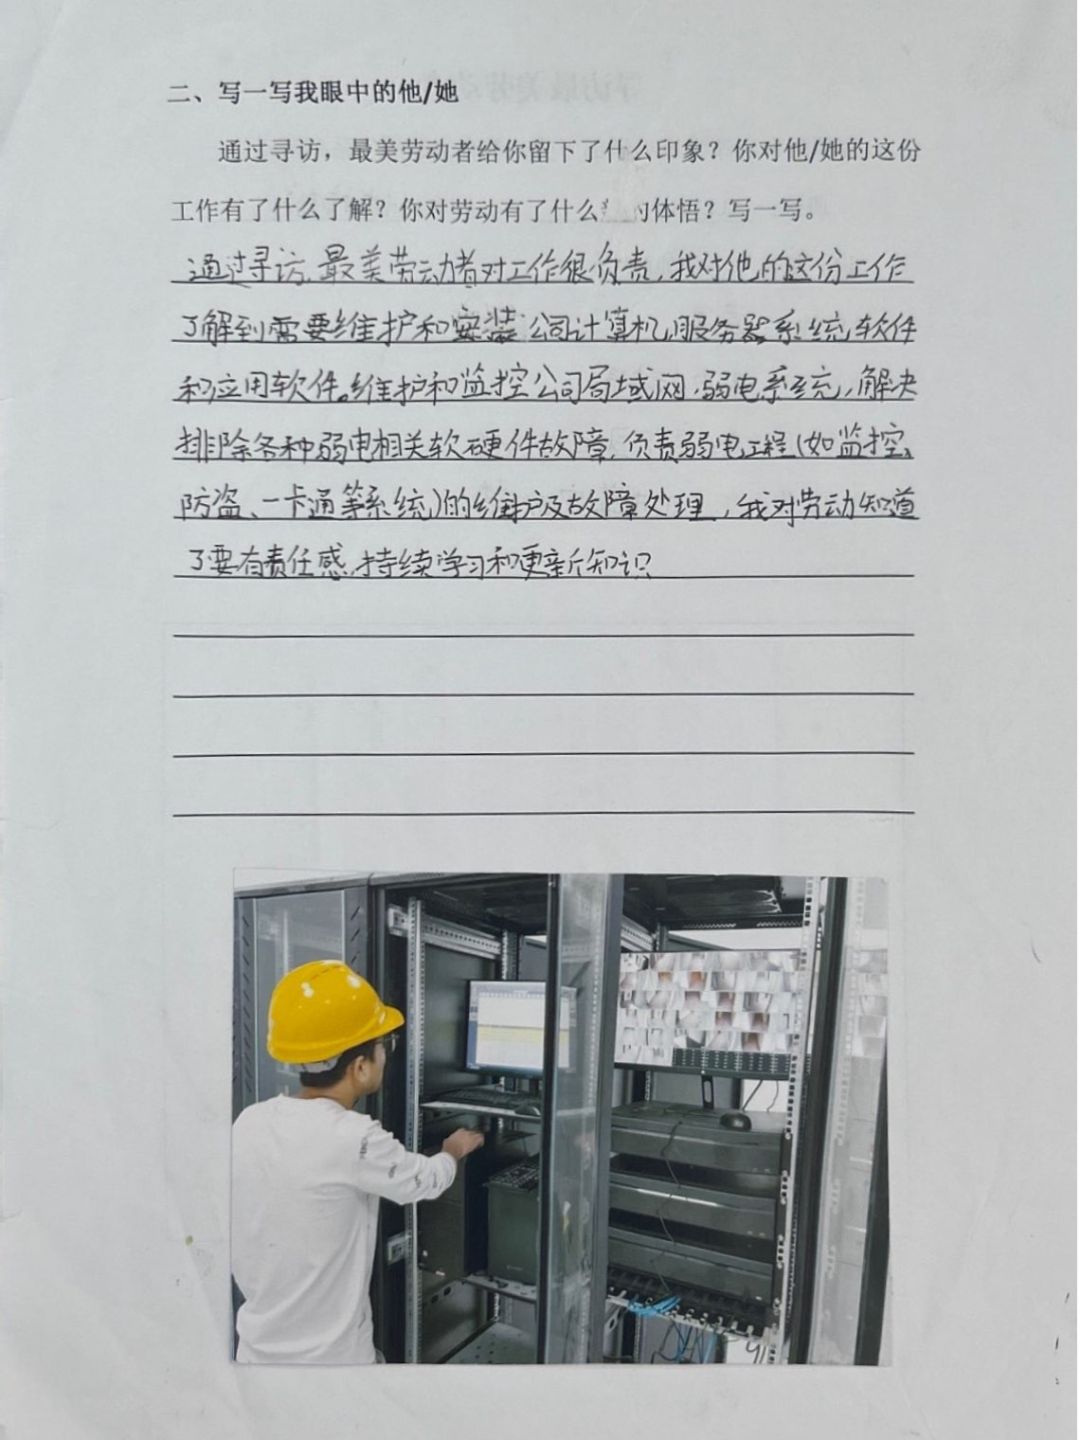 二、写一写我眼中的他/她
通过寻访，最美劳动者给你留下了什么印象？你对他/她的这份
工作有了什么了解？你对劳动有了什么 的体悟？写一写。
通过寻访,最美劳动者对工作很负责,我对他的这份工作
了解到需要维护和安装公司计算机,服务器系统软件
和应用软件。维护和监控公司局域网,弱电系统,解决
排除各种弱电相关软硬件故障,负责弱电工程(如监控、
防盗、一卡通等系统)的维护及故障处理,我对劳动知道
了要有责任感,持续学习和更新知识